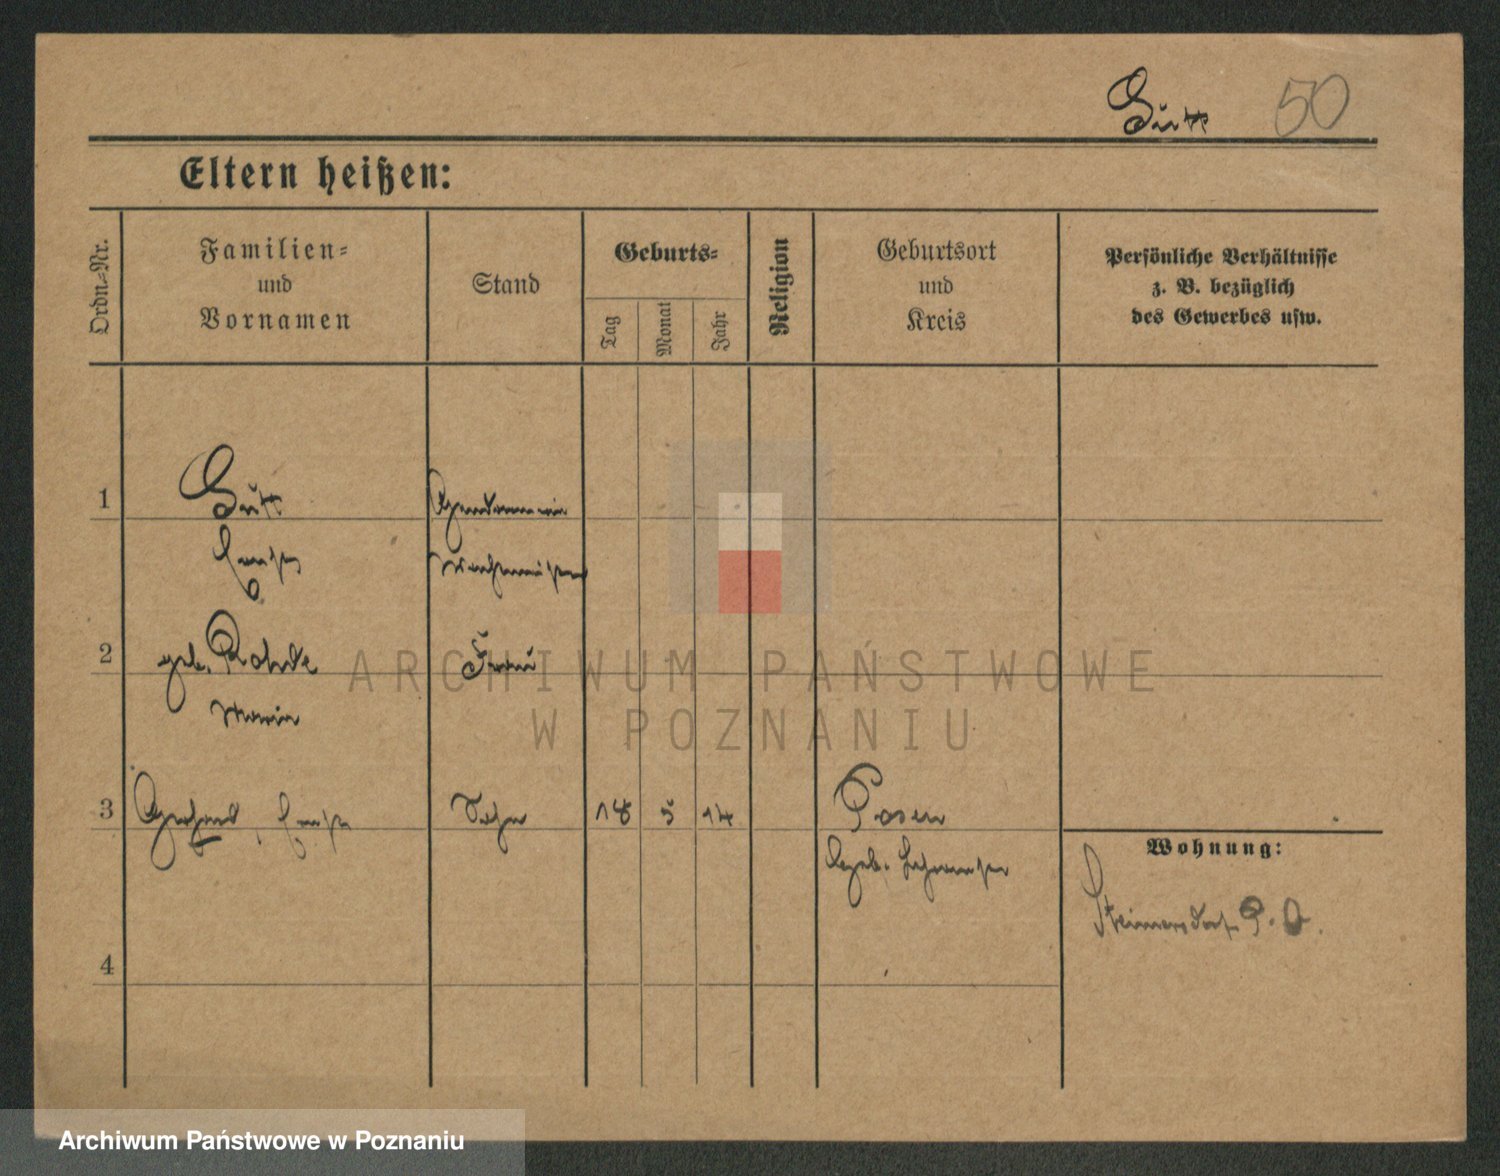 Gutt 50
Eltern heißen:
Ordn.=Nr.
Familien=
und
Vornamen
Stand
Geburts=
Tag
Monat
Jahr
Religion
Geburtsort
und
Kreis
Persönliche Verhältnisse
z. B. bezüglich
des Gewerbes usw.
1
Gendarmerie
Wachtmeister
2 geb. Rohde Frau
Maria
3 Gerhard, Sohn 18 5 14 Posen
Wohnung:
4
ARCHIWUM PAŃSTWOWE
W POZNANIU
Archiwum Państwowe w Poznaniu